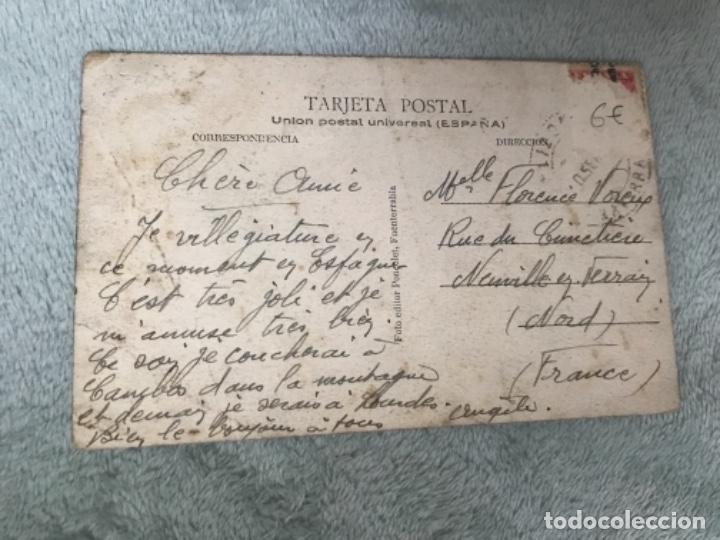 TARJETA POSTAL
Union postal universal (ESPAÑA)
CORRESPONDENCIA
DIRECCION
6€
Chère Amie
Je villégiature en
ce moment en Espagne
C'est très joli et je
m'amuse très bien.
Ce soir je coucherai à
Cambo dans la montagne
et demain je serais à Lourdes.
Bien le bonjour à tous
Foto editor Poncelet, Fuenterrabia
Melle Florence
Rue du Cimetière
Neuville en Ferrain
(Nord)
(France)
todocoleccion.net